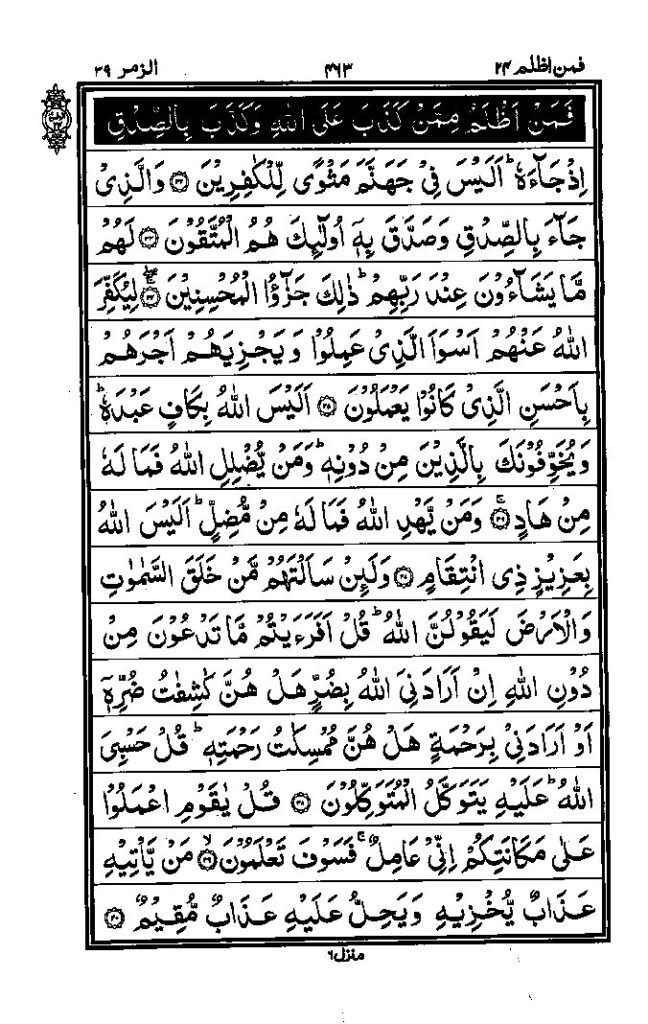 فمن اظلم ۲۴ ۴۶۳ الزمر ۳۹
فَمَنْ اَظْلَمُ مِمَّنْ كَذَبَ عَلَى اللّٰهِ وَكَذَّبَ بِالصِّدْقِ
اِذْ جَآءَهٗ ؕ اَلَيْسَ فِىْ جَهَنَّمَ مَثْوًى لِّلْكٰفِرِيْنَ ۝۳۲ وَالَّذِىْ
جَآءَ بِالصِّدْقِ وَصَدَّقَ بِهٖۤ اُولٰٓئِكَ هُمُ الْمُتَّقُوْنَ ۝۳۳ لَهُمْ
مَّا يَشَآءُوْنَ عِنْدَ رَبِّهِمْ ؕ ذٰلِكَ جَزٰٓؤُا الْمُحْسِنِيْنَ ۝۳۴ لِيُكَفِّرَ
اللّٰهُ عَنْهُمْ اَسْوَاَ الَّذِىْ عَمِلُوْا وَيَجْزِيَهُمْ اَجْرَهُمْ
بِاَحْسَنِ الَّذِىْ كَانُوْا يَعْمَلُوْنَ ۝۳۵ اَلَيْسَ اللّٰهُ بِكَافٍ عَبْدَهٗ ؕ
وَيُخَوِّفُوْنَكَ بِالَّذِيْنَ مِنْ دُوْنِهٖ ؕ وَمَنْ يُّضْلِلِ اللّٰهُ فَمَا لَهٗ
مِنْ هَادٍ ۝۳۶ۚ وَمَنْ يَّهْدِ اللّٰهُ فَمَا لَهٗ مِنْ مُّضِلٍّ ؕ اَلَيْسَ اللّٰهُ
بِعَزِيْزٍ ذِى انْتِقَامٍ ۝۳۷ وَلَئِنْ سَاَلْتَهُمْ مَّنْ خَلَقَ السَّمٰوٰتِ
وَالْاَرْضَ لَيَقُوْلُنَّ اللّٰهُ ؕ قُلْ اَفَرَءَيْتُمْ مَّا تَدْعُوْنَ مِنْ
دُوْنِ اللّٰهِ اِنْ اَرَادَنِىَ اللّٰهُ بِضُرٍّ هَلْ هُنَّ كٰشِفٰتُ ضُرِّهٖۤ
اَوْ اَرَادَنِىْ بِرَحْمَةٍ هَلْ هُنَّ مُمْسِكٰتُ رَحْمَتِهٖ ؕ قُلْ حَسْبِىَ
اللّٰهُ ؕ عَلَيْهِ يَتَوَكَّلُ الْمُتَوَكِّلُوْنَ ۝۳۸ قُلْ يٰقَوْمِ اعْمَلُوْا
عَلٰى مَكَانَتِكُمْ اِنِّىْ عَامِلٌ ۚ فَسَوْفَ تَعْلَمُوْنَ ۝۳۹ۙ مَنْ يَّاْتِيْهِ
عَذَابٌ يُّخْزِيْهِ وَيَحِلُّ عَلَيْهِ عَذَابٌ مُّقِيْمٌ ۝۴۰
منزل ۶